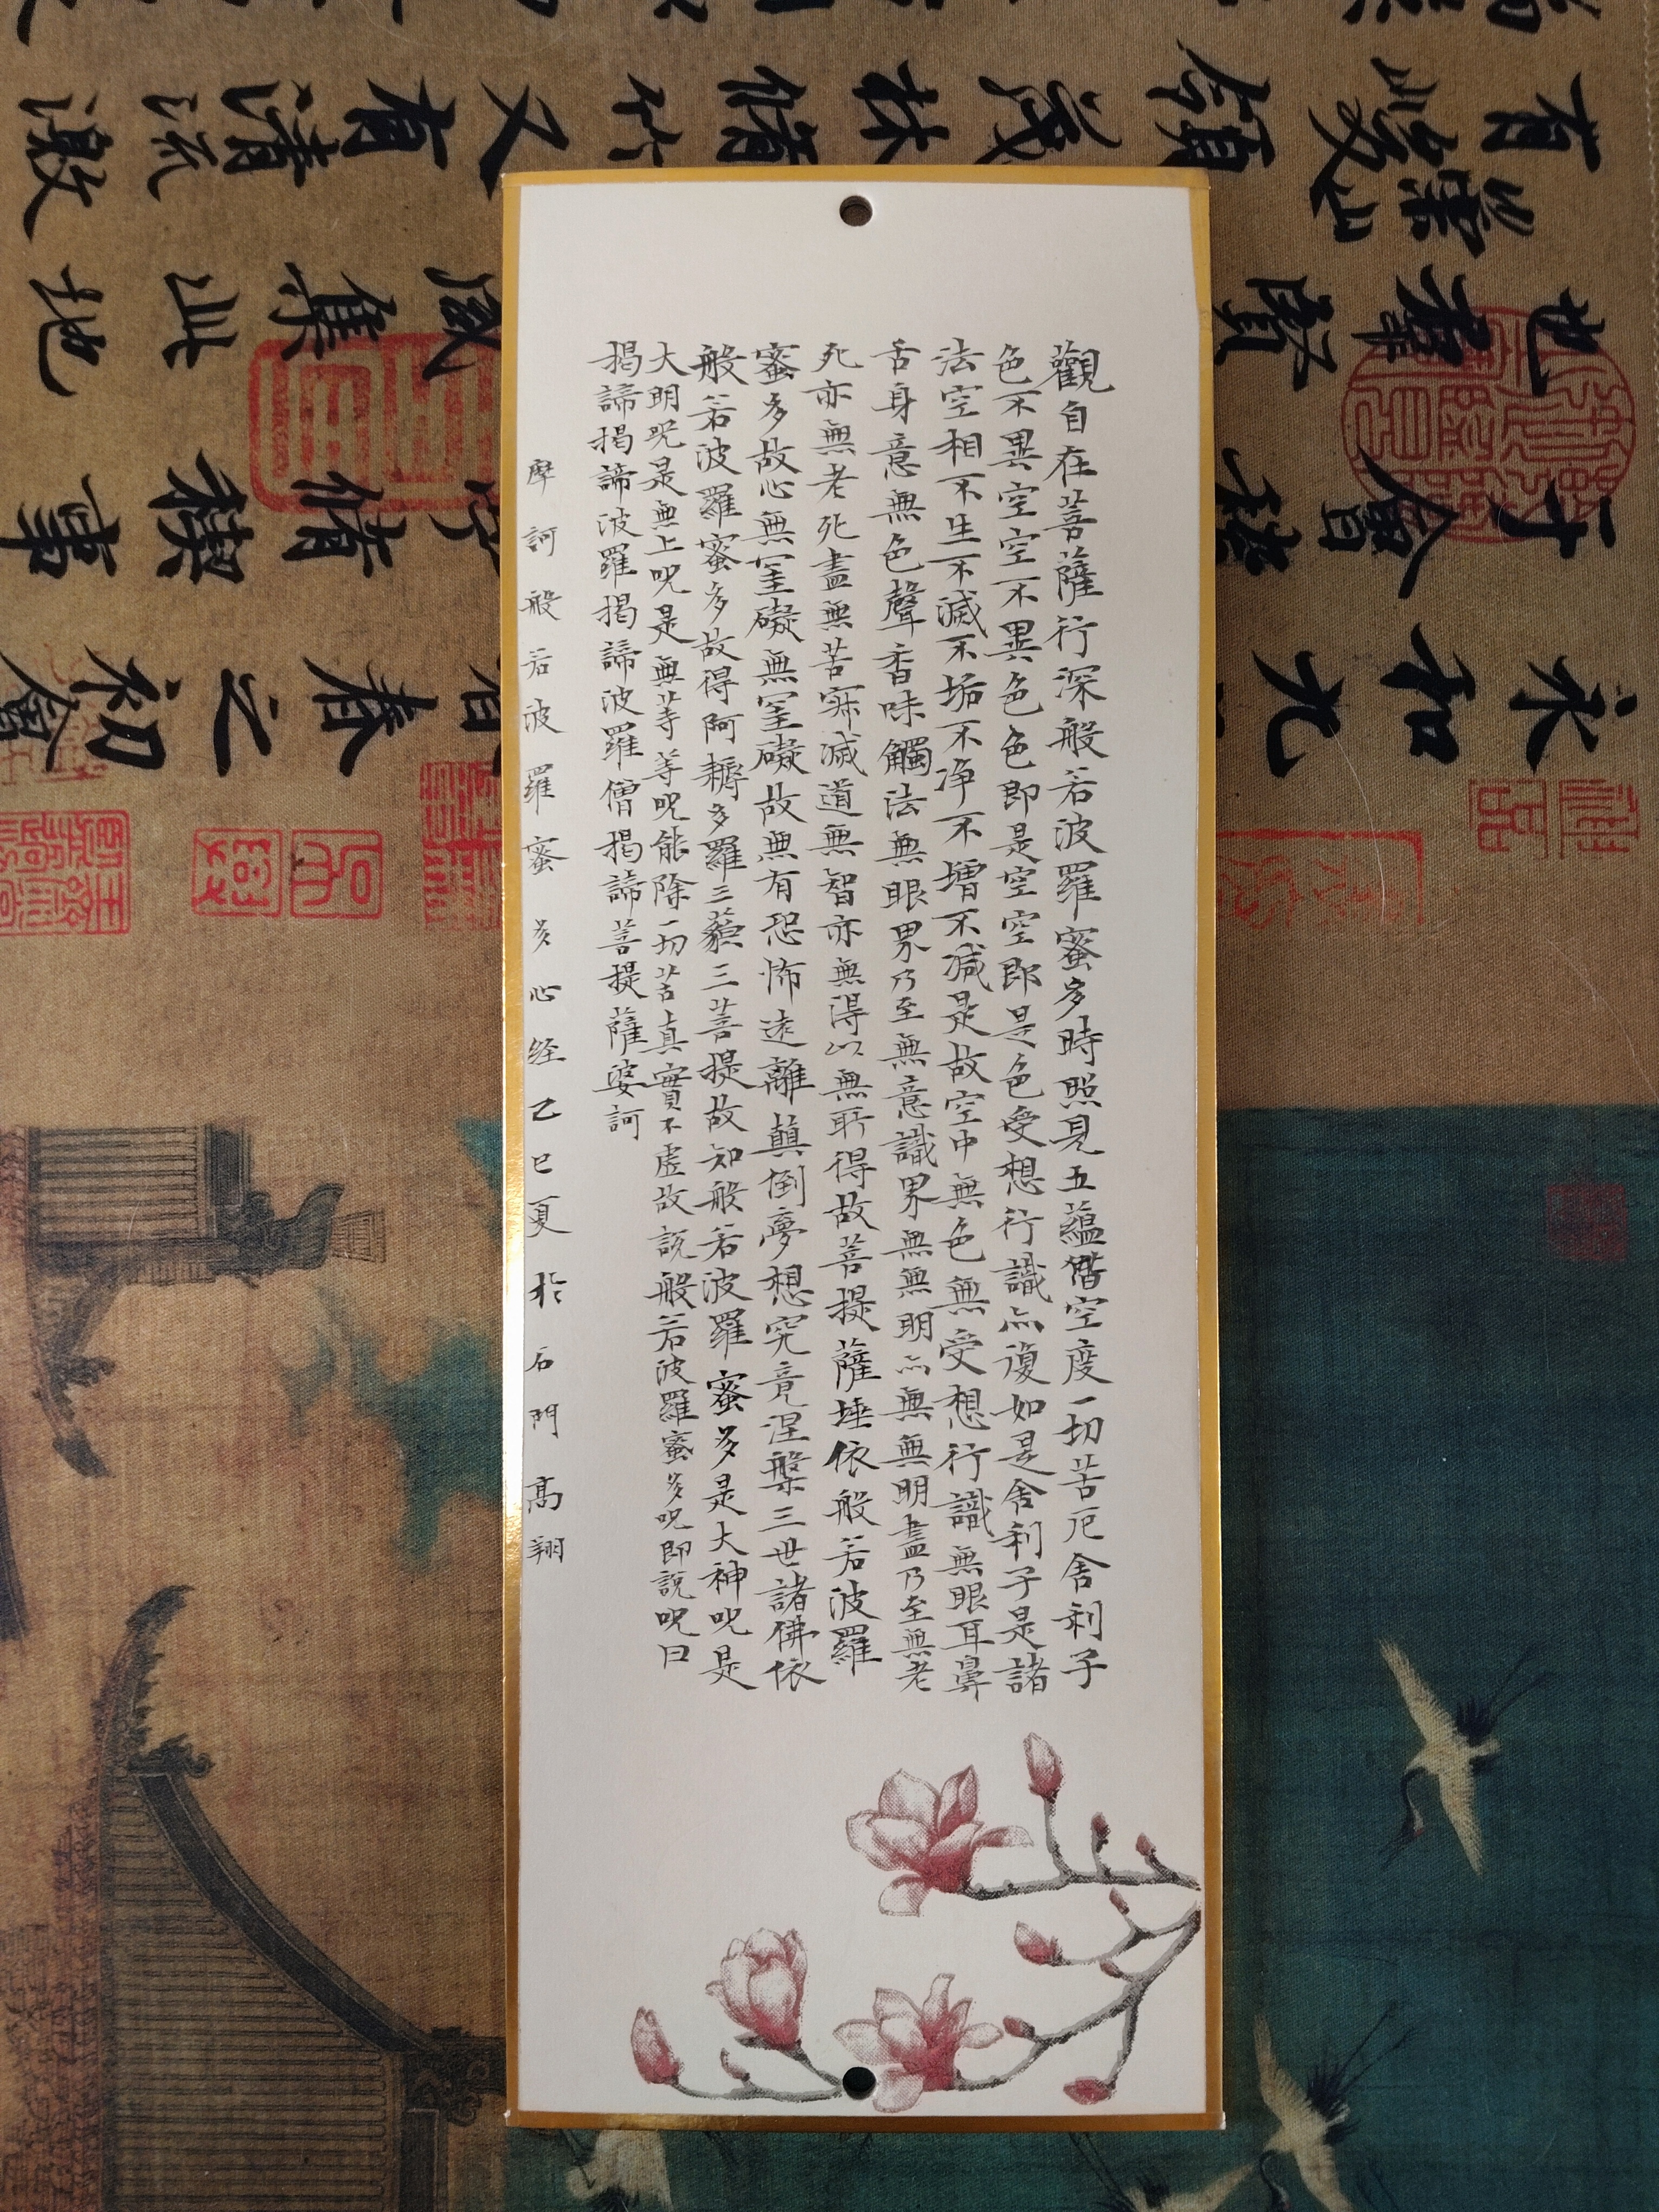 觀自在菩薩行深般若波羅蜜多時照見五蘊皆空度一切苦厄舍利子
色不異空空不異色色即是空空即是色受想行識亦復如是舍利子是諸
法空相不生不滅不垢不淨不增不減是故空中無色無受想行識無眼耳鼻
舌身意無色聲香味觸法無眼界乃至無意識界無無明亦無無明盡乃至無老
死亦無老死盡無苦寂滅道無智亦無得以無所得故菩提薩埵依般若波羅
蜜多故心無罣礙無罣礙故無有恐怖遠離顛倒夢想究竟涅槃三世諸佛依
般若波羅蜜多故得阿耨多羅三藐三菩提故知般若波羅蜜多是大神呪是
大明呪是無上呪是無等等呪能除一切苦真實不虛故說般若波羅蜜多呪即說呪曰
揭諦揭諦波羅揭諦波羅僧揭諦菩提薩婆訶
摩訶般若波羅蜜多心経乙巳夏於石門高翔
永和九春之初會
于會稽脩稧事
也羣賢咸集此地
有崇山峻領茂林脩竹又有清流激